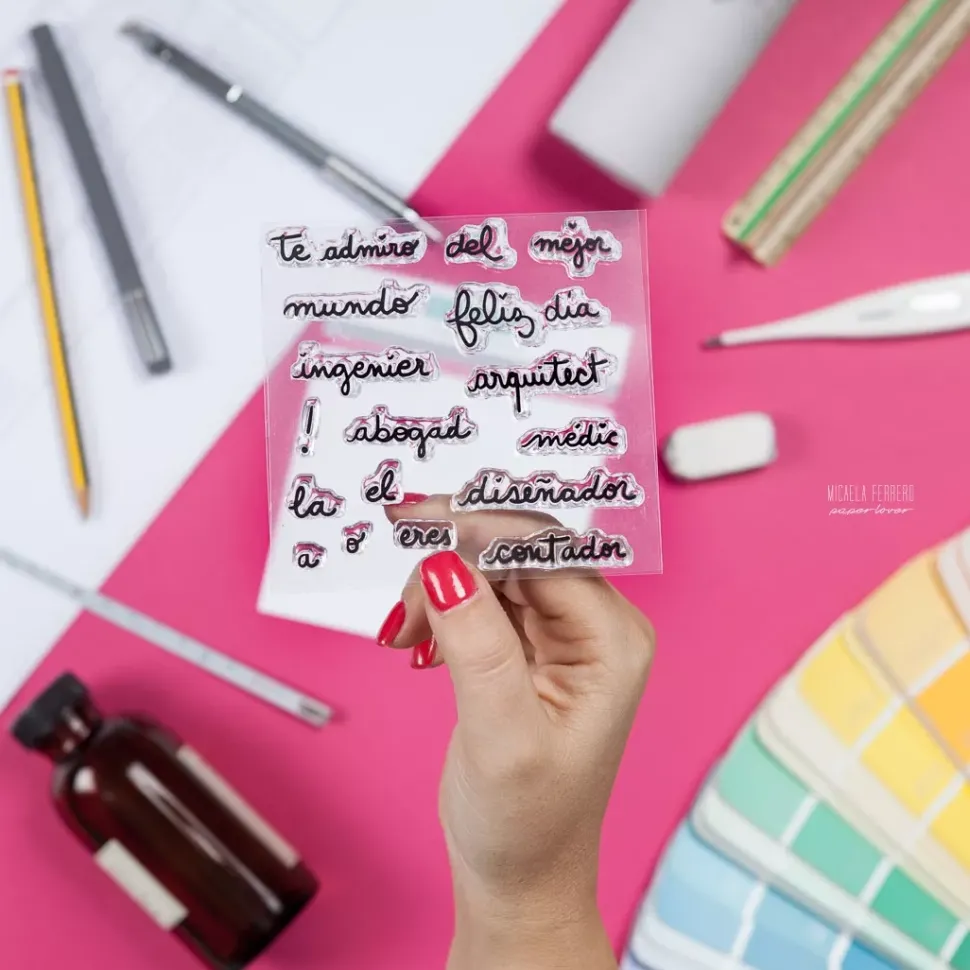 te admiro del mejor
mundo feliz día
ingenier arquitect
! abogad médic
la el diseñador
a o eres contador
MICAELA FERRERO
paper lover